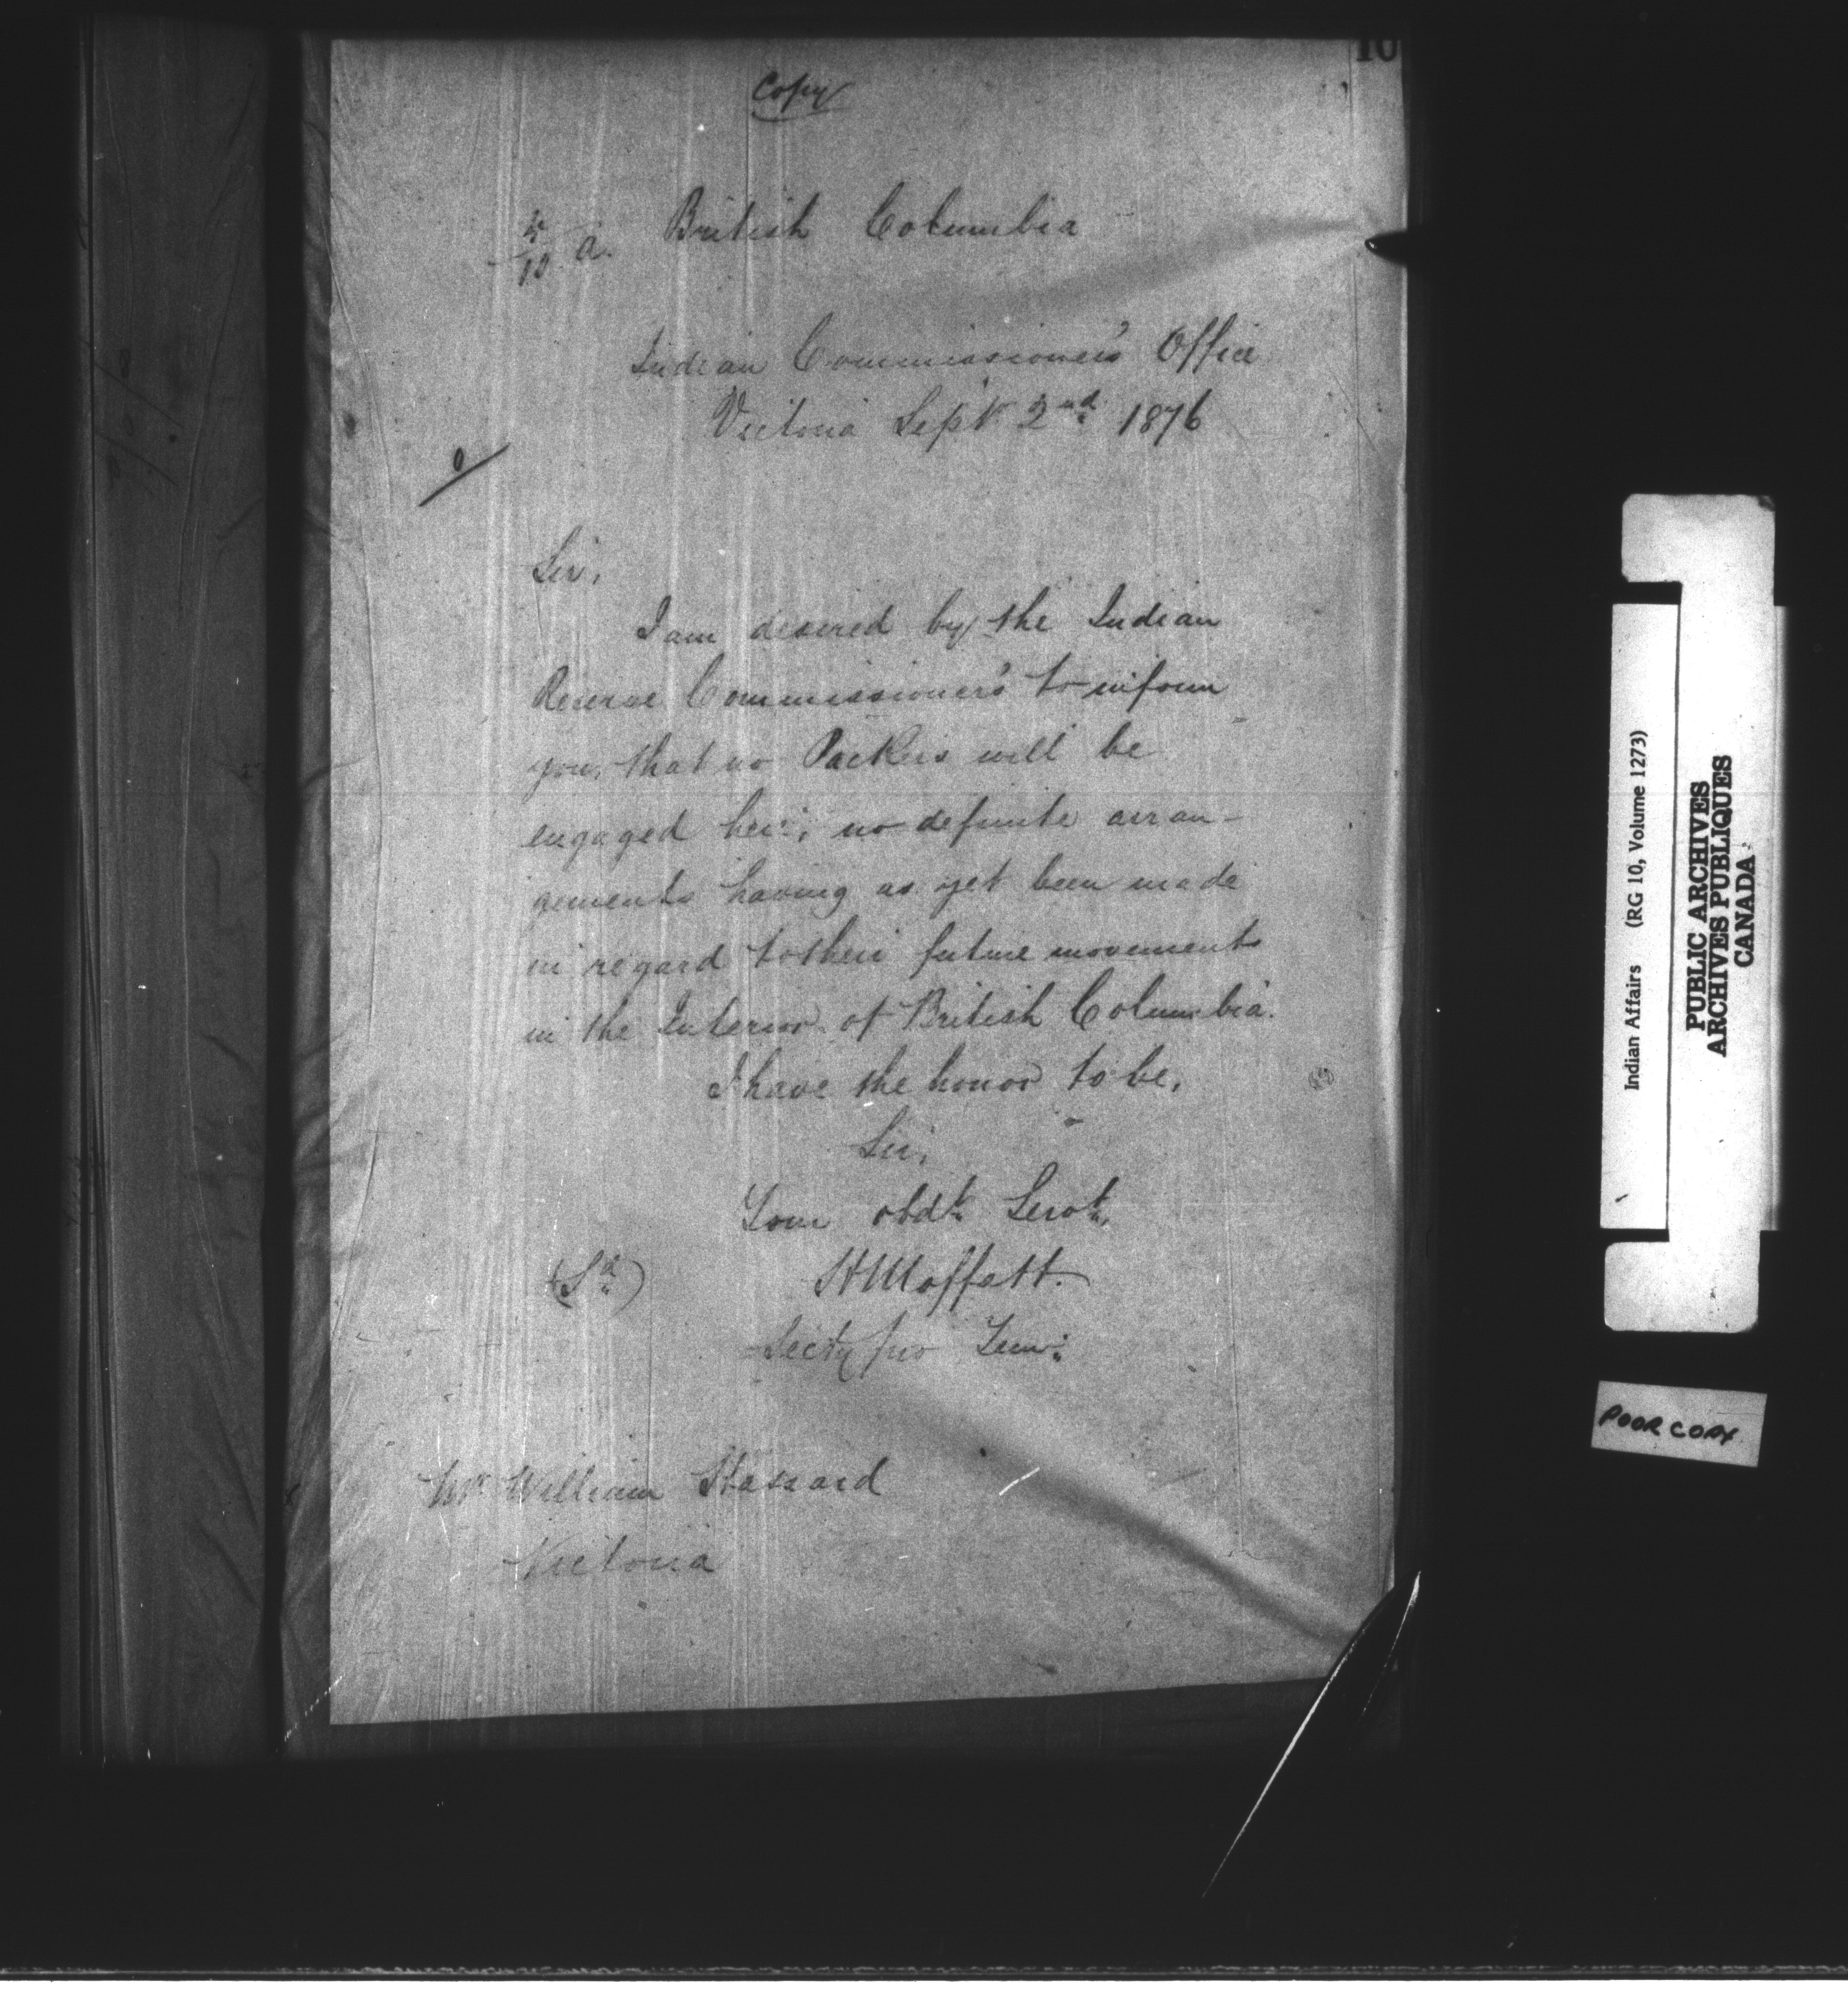 10
Copy
British Columbia
a.
Indian Commissioner's Office
Victoria Sept. 2nd 1876
Sir,
I am desired by the Indian
Reserve Commissioner's to inform
you, that no Packers will be
engaged here, no definite arran-
gements having as yet been made
in regard to their future movements
in the Interior of British Columbia.
I have the honor to be,
Sir,
Your obdt. Servt.
(Sd) H Moffatt.
Secty pro Tem:
Mr William Hassard
Victoria
Indian Affairs (RG 10, Volume 1273)
PUBLIC ARCHIVES
ARCHIVES PUBLIQUES
CANADA
POOR COPY